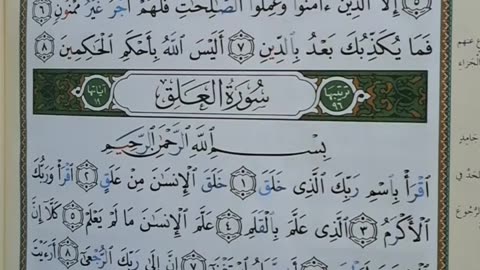 إِلَّا ٱلَّذِينَ ءَامَنُوا۟ وَعَمِلُوا۟ ٱلصَّـٰلِحَـٰتِ فَلَهُمْ أَجْرٌ غَيْرُ مَمْنُونٍ ٦
فَمَا يُكَذِّبُكَ بَعْدُ بِٱلدِّينِ ٧ أَلَيْسَ ٱللَّهُ بِأَحْكَمِ ٱلْحَـٰكِمِينَ ٨
ترتيبها ٩٦ سُورَةُ الْعَلَقِ آياتها ١٩
بِسْمِ ٱللَّهِ ٱلرَّحْمَـٰنِ ٱلرَّحِيمِ
ٱقْرَأْ بِٱسْمِ رَبِّكَ ٱلَّذِى خَلَقَ ١ خَلَقَ ٱلْإِنسَـٰنَ مِنْ عَلَقٍ ٢ ٱقْرَأْ وَرَبُّكَ
ٱلْأَكْرَمُ ٣ ٱلَّذِى عَلَّمَ بِٱلْقَلَمِ ٤ عَلَّمَ ٱلْإِنسَـٰنَ مَا لَمْ يَعْلَمْ ٥ كَلَّآ إِنَّ
ٱسْتَغْنَىٰٓ ٧ إِنَّ إِلَىٰ رَبِّكَ ٱلرُّجْعَىٰٓ ٨ أَرَءَيْتَ